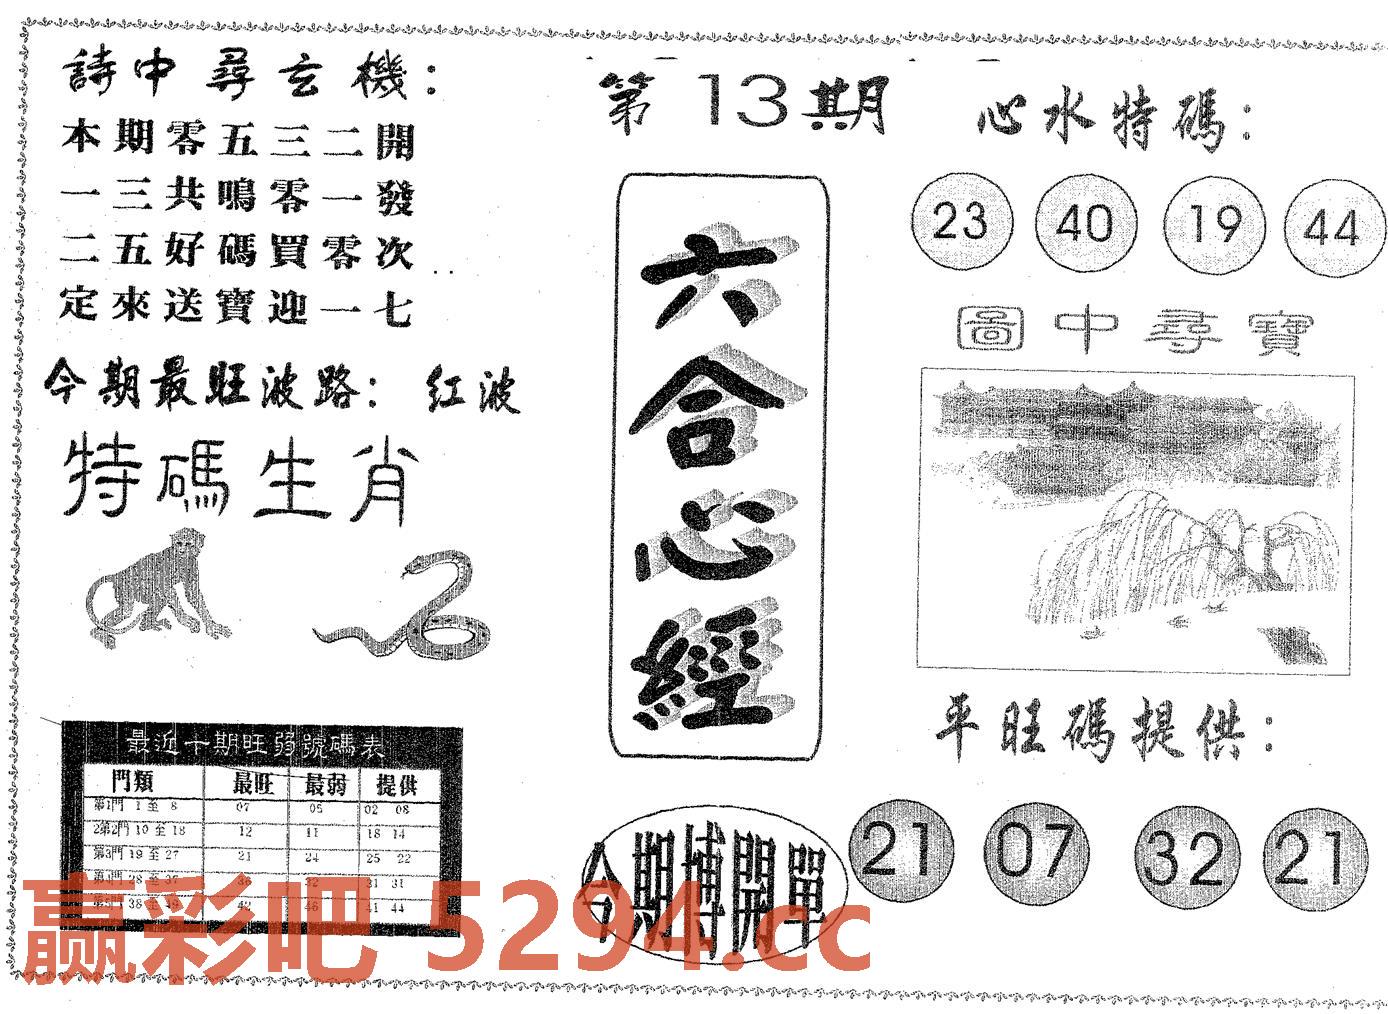 詩中尋玄機：
本期零五三二開
一三共鳴零一發
二五好碼買零次
定來送寶迎一七
今期最旺波路：紅波
特碼生肖
最近十期旺弱號碼表
門類 最旺 最弱 提供
第1門 1 至 8 07 05 02 08
2第2門 10 至 18 12 11 18 14
第3門 19 至 27 21 24 25 22
第4門 28 至 37 36 32 31 31
第5門 38 至 49 42 46 41 44
第13期
六合心經
今期博開單
心水特碼：
23 40 19 44
圖中尋寶
平旺碼提供：
21 07 32 21
赢彩吧 5294.cc